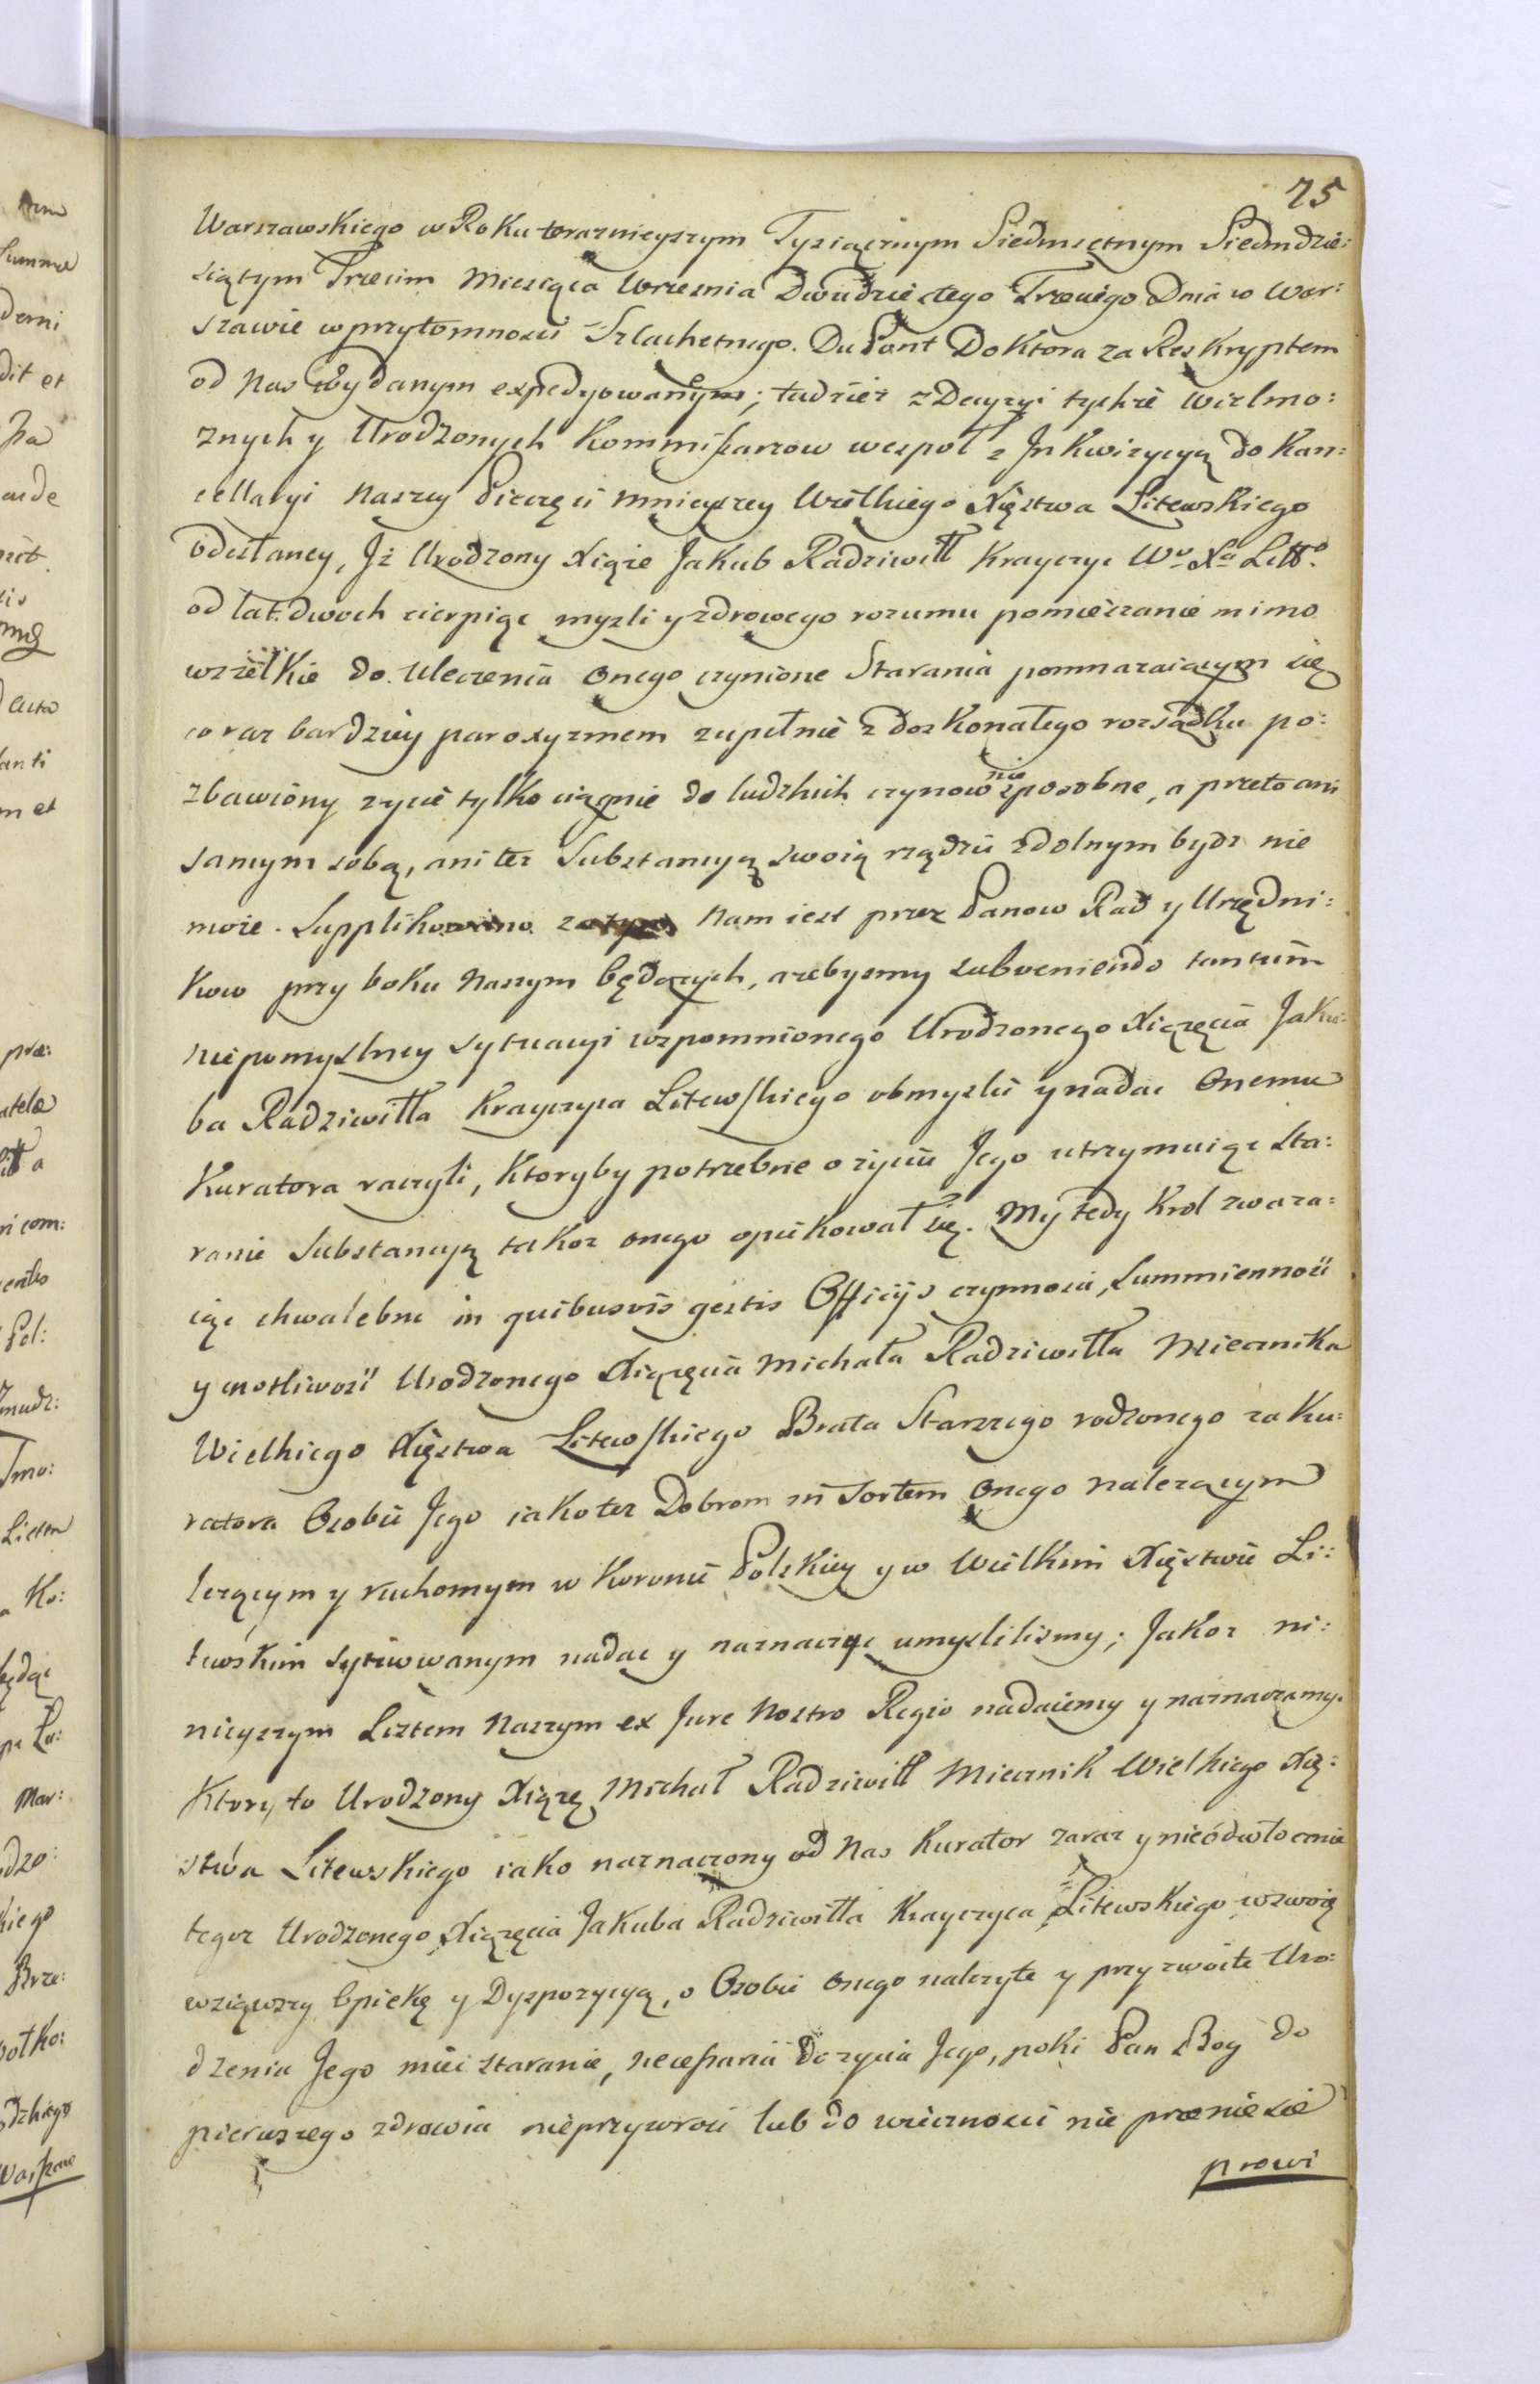 75
Warszawskiego w Roku teraznieyszym Tysiącznym Siedmsetnym Siedmdzie:
siątym Trzecim Miesiąca Wrzesnia Dwudziestego Trzeciego Dnia w War:
szawie w przytomnosci Szlachetnego DuPont Doktora za Reskryptem
od Nas Wydanym expedyowanym; tudziez z Decyzyi tychże Wielmo:
znych y Urodzonych Kommissarzow wespoł z Inkwizycyą do Kan:
cellaryi Naszey Pieczęci mnieyszey Wielkiego Xięstwa Litewskiego
odesłaney, Iż Urodzony Xiąże Jakub Radziwiłł Krayczyc Wo Xa Litto.
od lat dwoch cierpiąc mysli y zdrowego rozumu pomieszanie mimo
wszelkie do uleczenia onego czynione Starania pomnazaiącym się
coraz bardziey paroxyzmem zupełnie z doskonałego rozsądku po:
zbawiony zycie tylko ciągnie do ludzkich czynow nie sposobne, a przeto ani
samym sobą, ani tez Substancyą swoią rządzic zdolnym bydz nie
może. Supplikowano Nam iest przez Panow Rad y Urzędni:
kow przy boku Naszym będących, azebysmy subveniendo tantum
niepomyslney sytuacyi wspomnionego Urodzonego Xiążęcia Jaku:
ba Radziwiłła Krayczyca Litewskiego obmyslic y nadac Onemu
Kuratora raczyli, Ktoryby potrzebne o życiu Jego utrzymuiąc sta:
ranie Substancyą takoz onego opiekował się. My tedy Krol zwaza:
iąc chwalebne in quibusvis gestis Officijs czynnosci, Summiennosc
y cnotliwosc Urodzonego Xiążęcia Michała Radziwiłła Miecznika
Wielkiego Xięstwa Litewskiego Brata Starszego rodzonego za Ku:
ratora Osobie Jego iako tez Dobrom in Sortem Onego nalezącym
lezącym y ruchomym w Koronie Polskiey y w Wielkim Xięstwie Li:
tewskim sytuowanym nadac y naznaczyc umyslilismy; Jakoz ni:
nieyszym Listem Naszym ex Jure Nostro Regio nadaiemy y naznaczamy.
Ktory to Urodzony Xiążę Michał Radziwiłł Miecznik Wielkiego Xię:
stwa Litewskiego iako naznaczony od Nas Kurator zaraz y nieodwłocznie
tegoz Urodzonego Xiążęcia Jakuba Radziwiłła Krayczyca Litewskiego w swoią
wziąwszy Opiekę y Dyspozycyą, o Osobie Onego nalezyte y przyzwoite Uro:
dzeniu Jego miec staranie, necessaria do zycia Jego, poki Pan Bog do
pierwszego zdrowia nieprzywroci lub do wiecznosci nie przeniesie
prowi